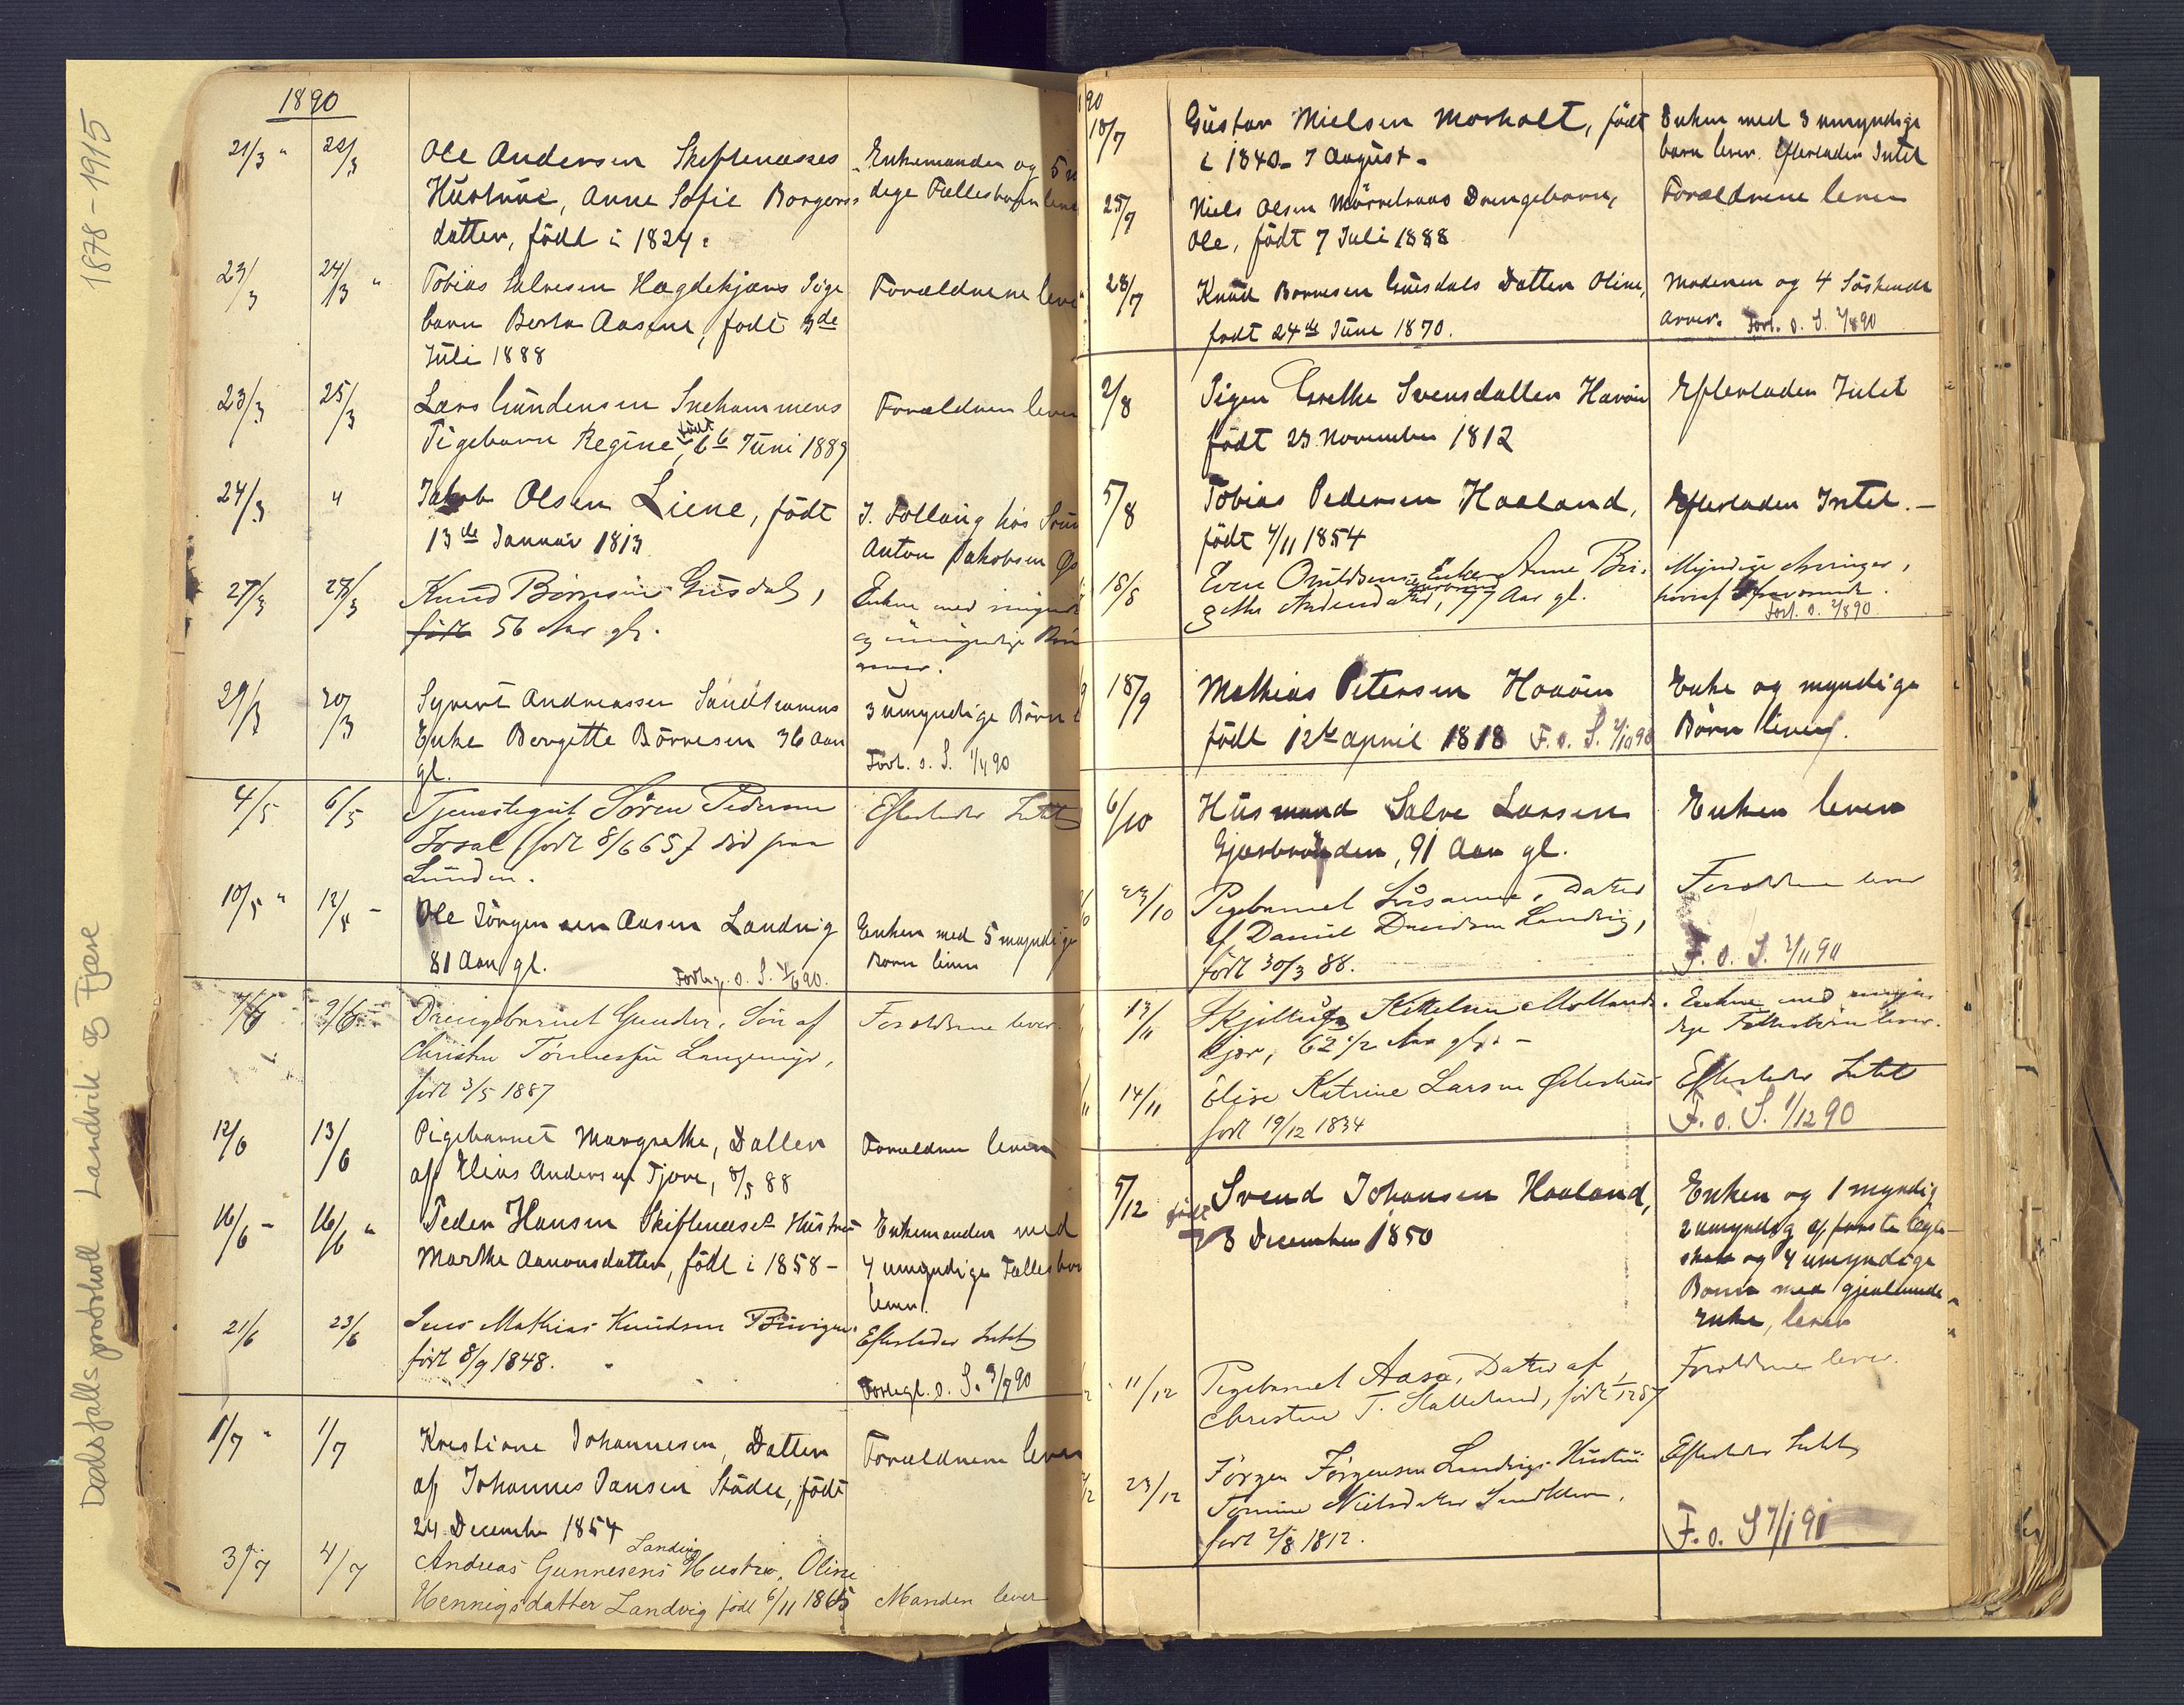 Dødsfalls protokoll Landvik og Fjære 1878-1915
1890
21/3 " 22/3 Ole Andersen Skiftenæsses Enkemanden og 5
Hustrue, Anne Sofie Borgers- dige Fællesbørn leve
datter, født i 1824.
23/3 24/3 " Tobias Salvesen Hægdekjærs Pige Forældrene leve
barn Berta Aasine, født 3de
Juli 1888
23/3 25/3 Lars Gundersen Forældren leve
Pigebarn Regine, født 6te Juni 1889
24/3 " Jakob Olsen Liene, født I. Follaug hos
13de Januar 1813 Anton Jakobsen
27/3 28/3 Knud Børresen Gusdal, Enken med
født 56 Aar gl. og umyndige
arver.
29/3 30/3 Syvert Andreassen 3 umyndige Børn
Enke Bergette Børresen 36 Aar
gl. Forl. o. S. 1/4 90
4/5 6/5 Tjenestegut Søren Pedersen Efterlader Intet
Fosal (født 8/6 65) død paa
Lunden.
10/5 " 12/5 - Ole Jørgensen Aasen Landvig Enken med 5 myndige
81 Aar gl. Børn lever
Forlagg. o. S. 90.
7/6 9/6 Drengebarnet Gunder, Søn af Forældrene lever.
Christen Langemyr,
født 3/5 1887
12/6 13/6 Pigebarnet Margrethe, Datter Forældren lever
af Elias Andersen Fjære, 8/5 88
16/6 - 16/6 " Peder Hansen Skiftenæs's Hustru Enkemanden med
Marthe Aanonsdatter, født i 1858 - 4 umyndige Fællesbør
lever.
21/6 23/6 Jens Mathias Knudsen Efterlader Intet
født 8/9 1848.
Forlegl. o. S. 3/7 90
1/7 " 1/7 Kristiane Johannesen, Datter Forældrene lever
af Johannes Jansen Stødle, født
24 December 1854
3/7 4/7 Andreas Gunnesens Landvig Hustru, Oline
Hennigsdatter Landvig født 6/11 1865 Manden lever
90
18/7 Gustav Nielsen Morholt, født Enken med 3 umyndige
i 1840 - 7 August - barn lever. Efterlader Intet
25/7 Niels Olsen Drengebarn, Forældrene lever
Ole, født 7 Juli 1888
28/7 Knud Børresen Gusdals Datter Oline, Moderen og 4 Søskende
født 24de June 1870. arver. Forl. o. S. 2/8 90
2/8 Pigen Grethe Svensdatter Havøen Efterlader Intet
født 23 November 1812
5/8 Tobias Pedersen Haaland, Efterlader Intet. -
født 4/11 1854
18/8 Even Enke Anne Bir- Myndige Arvinger,
gethe 77 Aar gl. hvoraf
Forl. o. 2/8 90
18/9 Mathias Petersen Havøen Enke og myndige
født 12te april 1818 F. o. S. 2/10 90 Børn lever.
6/10 Husmand Salve Larsen Enken lever
91 Aar gl.
23/10 Pigebarnet Susanne, Datter Forældrene lever
af Daniel Davidsen Landvig,
født 30/3 88. F. o. S. 3/11 90
13/11 Kittelsen Molland- Enken med umyn-
kjær, 62 1/2 Aar gl. - dige Fællesbørn lever.
14/11 Elise Katrine Larsen Østerhus Efterlader Intet
født 19/12 1834 F. o. S. 1/12 90
5/12 født Svend Johansen Haaland, Enken og 1 myndig
23 December 1850 2 umyndig af første Ægte-
skab og 4 umyndige
Børn med gjenlevende
Enke, lever
11/12 Pigebarnet Aasa, Datter af Forældrene lever.
Christen T. født 1/12 87
23/12 Jørgen Jørgensen Landvigs Hustru Efterlader Intet
Tomine Nielsdatter
født 2/8 1812. F. o. S 7/1 91